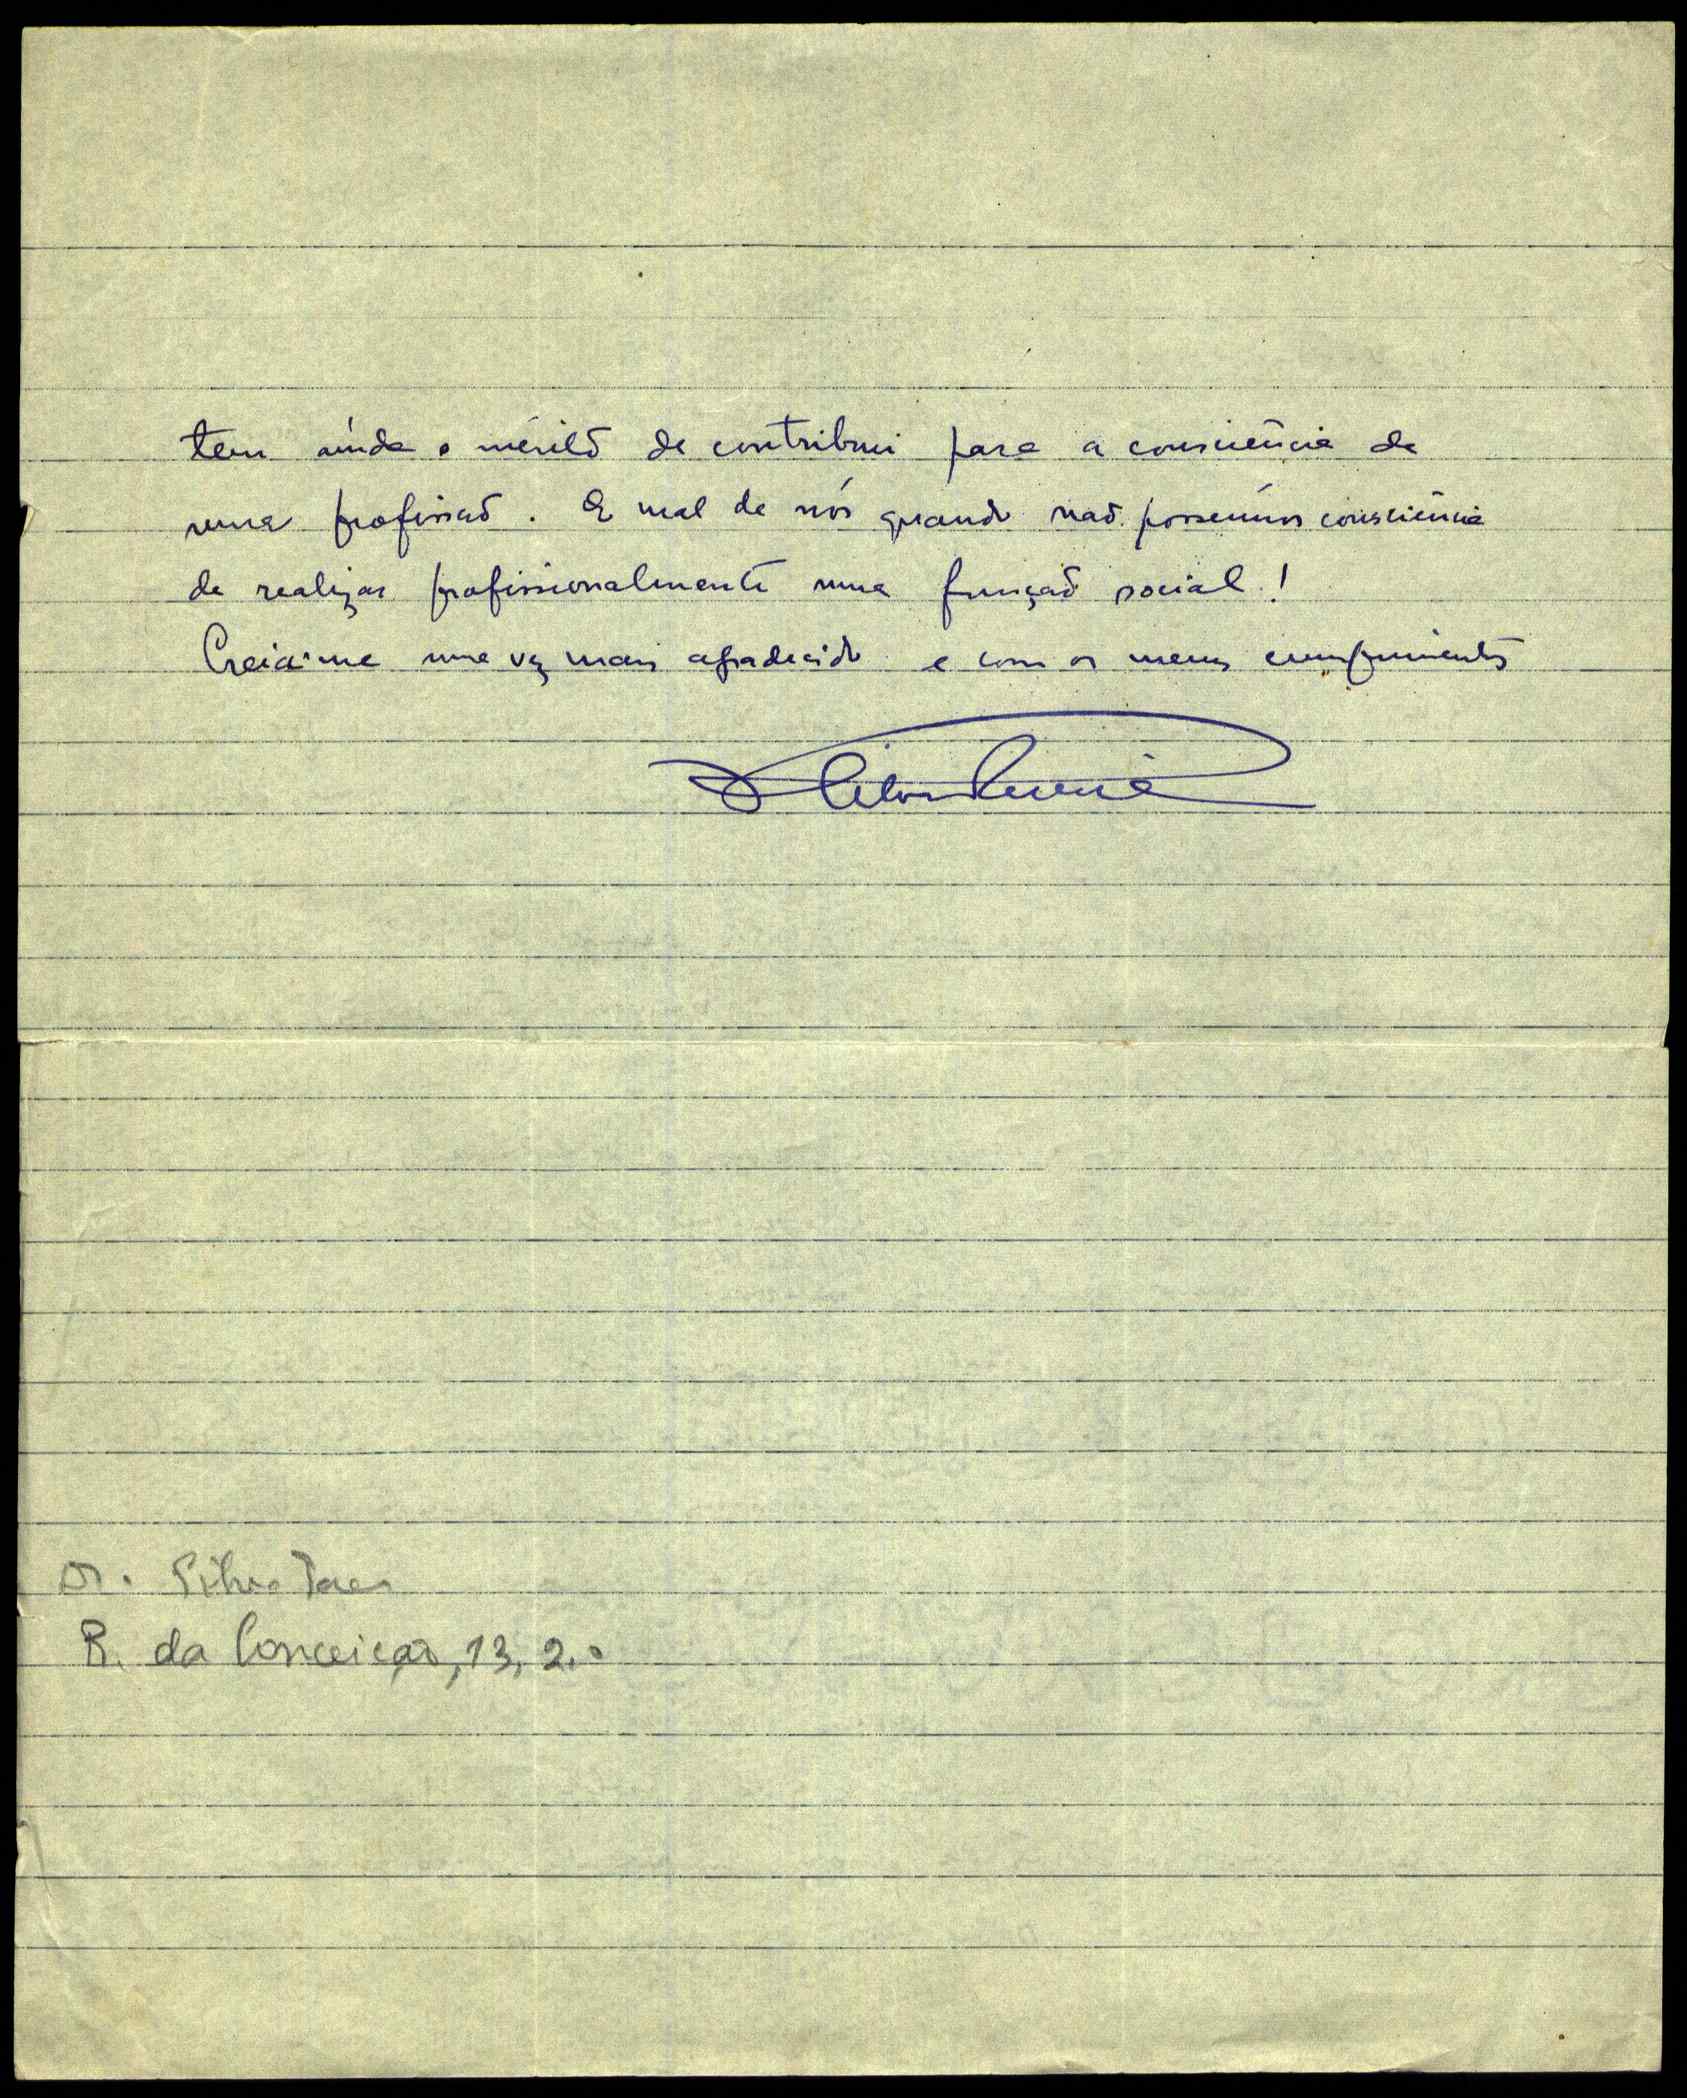 tem ainda o mérito de contribuir para a consciência de
uma profissão. E mal de nós quando não possuimos consciência
de realizar profissionalmente uma função social!
Creia-me uma vez mais agradecido e com os meus cumprimentos
Dr. Silva
R. da Conceição, 13, 2.º